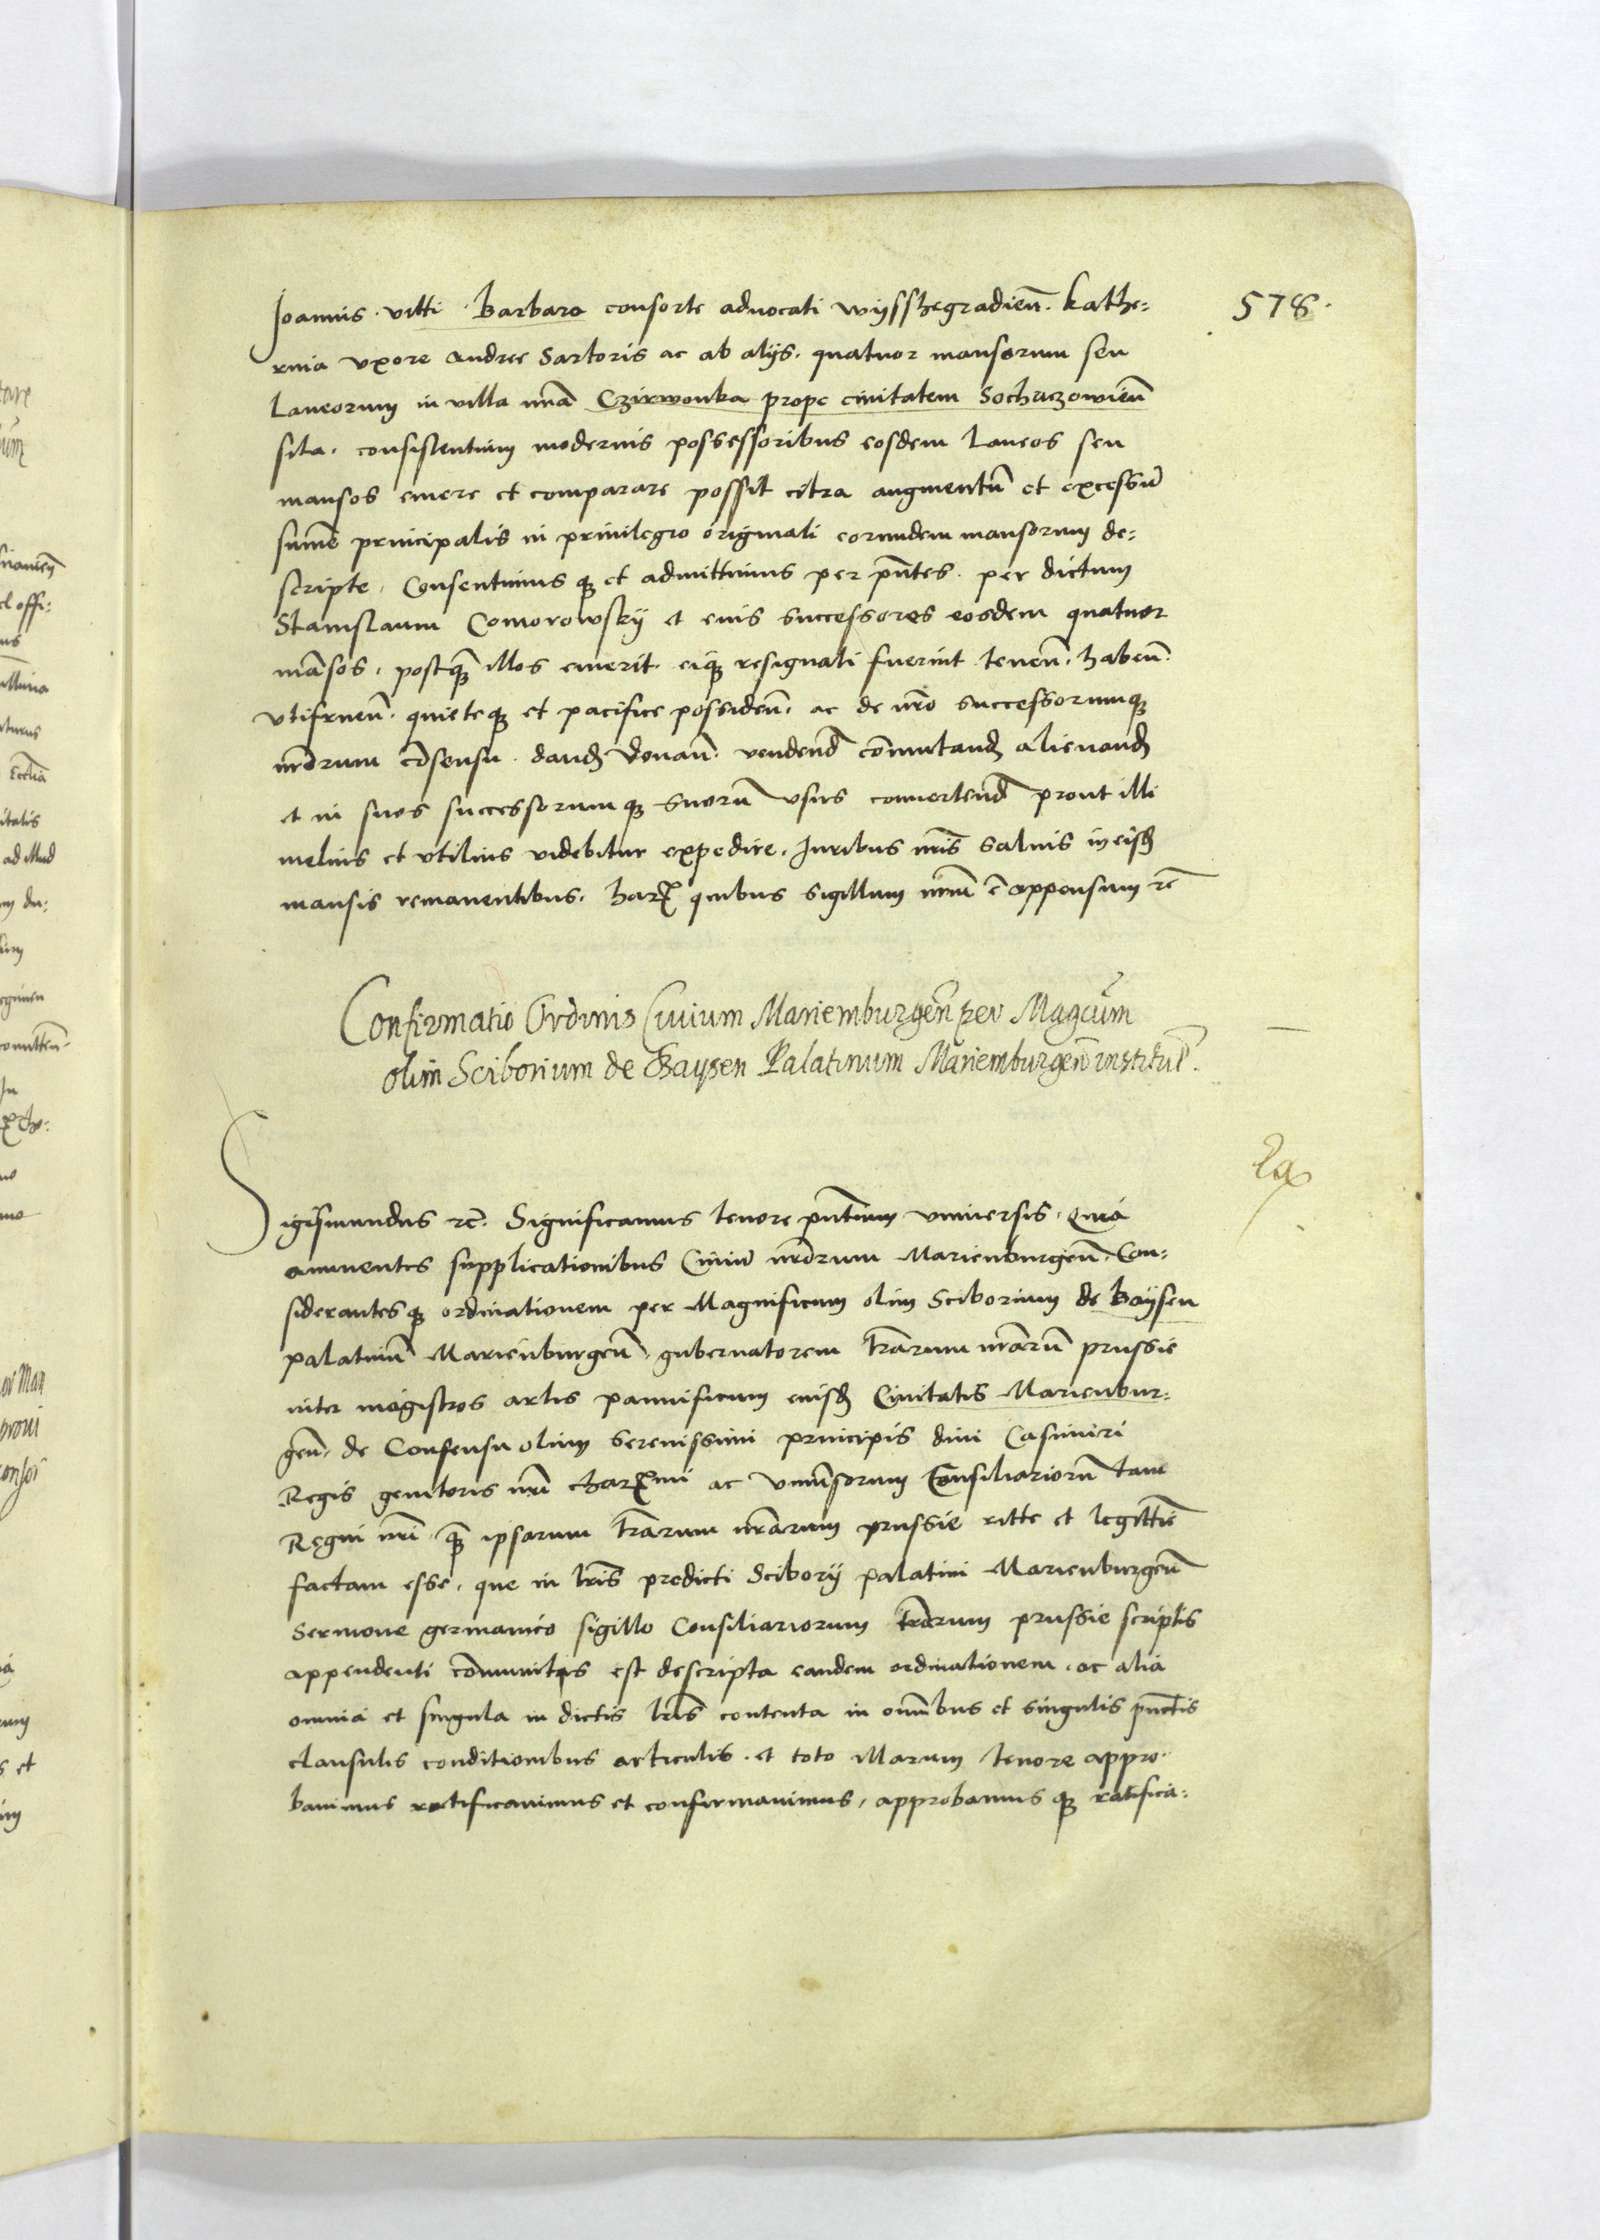 578.
Joannis vitti Barbara consorte advocati wysshegradien̄. Kathe=
rina vxore Andree Sartoris ac ab alijs. quatuor mansorum seu
Laneorum in villa nr̄a Czirwonka prope civitatem Sochaczowien̄
sita. consistentium modernis possessoribus eosdem laneos seu
mansos emere et comparare possit citra augmentū et excessū
sum̄e principalis in privilegio originali eorundem mansorum de=
scripte. Consentimus qȝ et admittimus per pn̄tes. per dictum
Stanislaum Comorowsky et eius successores eosdem quatuor
māsos. postqȝ illos emerit. eiqȝ resignati fuerint tenen̄. haben̄.
vtifruen̄. quiete qȝ et pacifice possiden̄. ac de nr̄o successorumqȝ
nr̄orum cōsensu. dandȝ donan̄. vendend̄ com̄utandȝ alienandȝ
et in suos successorum qȝ suorū vsus convertend̄ prout illi
melius et vtilius videbitur expedire. Juribus nr̄is salvis in eisdȝ
mansis remanentibus. harꝝ quibus sigillum nr̄um ē appensum rc̄
Confirmatio Ordinis Civium Mariemburgen̄ per Magcūm
olim Sciborium de Baysen Palatinum Mariemburgen̄ institut̄.
Sigismundus rc̄. Significamus tenore pn̄tium vniversis. Quia
annuentes supplicationibus Civiū nr̄orum Marienburgen̄. Con=
siderantes qȝ ordinationem per Magnificum olim Sciborium de Baysen
palatinū Marienburgen̄. gubernatorem tr̄arum nr̄arū prussie
inter magistros artis pannificum eiusdȝ Civitatis Marienbur=
gen̄. de Consensu olim serenissimi principis divi Casimiri
Regis genitoris nr̄i charꝝmi ac vniv̄sorum Consiliariorū tam
Regni nr̄i qȝ ipsarum tr̄arum nr̄arum prussie ritte et legittie
factam esse. que in lr̄is predicti Sciborij palatini Marienburgen̄
Sermone germanico sigillo Consiliariorum tr̄arum prussie scriptis
appendenti com̄unitas est descripta eandem ordinationem. ac alia
omnia et singula in dictis lr̄is contenta in om̄ibus et singulis punctis
clausulis conditionibus articulis. et toto illarum tenore appro=
bavimus ractificavimus et confirmavimus. approbamus qȝ ratifica=